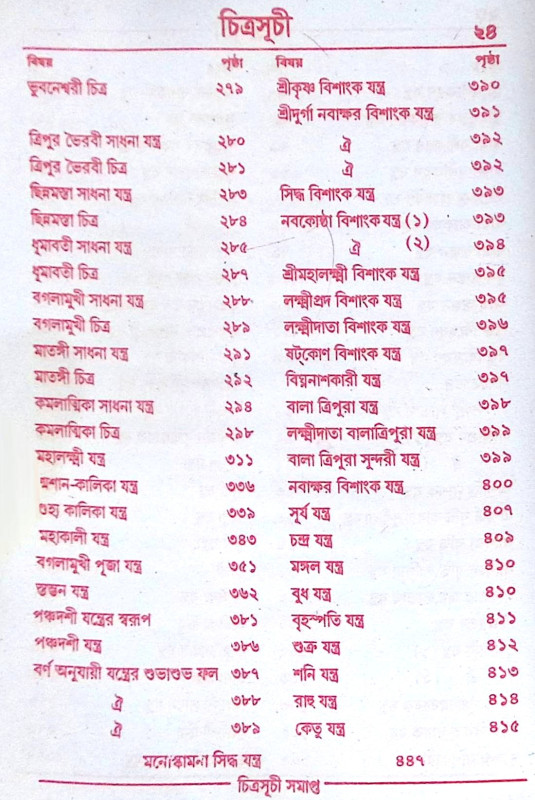 চিত্রসূচী
২৪
বিষয় পৃষ্ঠা
ভুবনেশ্বরী চিত্র ২৭৯
ত্রিপুর ভৈরবী সাধনা যন্ত্র ২৮০
ত্রিপুর ভৈরবী চিত্র ২৮১
ছিন্নমস্তা সাধনা যন্ত্র ২৮৩
ছিন্নমস্তা চিত্র ২৮৪
ধূমাবতী সাধনা যন্ত্র ২৮৫
ধূমাবতী চিত্র ২৮৭
বগলামুখী সাধনা যন্ত্র ২৮৮
বগলামুখী চিত্র ২৮৯
মাতঙ্গী সাধনা যন্ত্র ২৯১
মাতঙ্গী চিত্র ২৯২
কমলাত্মিকা সাধনা যন্ত্র ২৯৪
কমলাত্মিকা চিত্র ২৯৮
মহালক্ষ্মী যন্ত্র ৩১১
শ্মশান-কালিকা যন্ত্র ৩৩৬
গুহ্য কালিকা যন্ত্র ৩৩৯
মহাকালী যন্ত্র ৩৪৩
বগলামুখী পূজা যন্ত্র ৩৫১
স্তম্ভন যন্ত্র ৩৬২
পঞ্চদশী যন্ত্রের স্বরূপ ৩৮১
পঞ্চদশী যন্ত্র ৩৮৬
বর্ণ অনুযায়ী যন্ত্রের শুভাশুভ ফল ৩৮৭
ঐ ৩৮৮
ঐ ৩৮৯
বিষয় পৃষ্ঠা
শ্রীকৃষ্ণ বিশাংক যন্ত্র ৩৯০
শ্রীদুর্গা নবাক্ষর বিশাংক যন্ত্র ৩৯১
ঐ ৩৯২
ঐ ৩৯২
সিদ্ধ বিশাংক যন্ত্র ৩৯৩
নবকোষ্ঠা বিশাংক যন্ত্র (১) ৩৯৩
ঐ (২) ৩৯৪
শ্রীমহালক্ষ্মী বিশাংক যন্ত্র ৩৯৫
লক্ষ্মীপ্রদ বিশাংক যন্ত্র ৩৯৫
লক্ষ্মীদাতা বিশাংক যন্ত্র ৩৯৬
ষট্কোণ বিশাংক যন্ত্র ৩৯৭
বিঘ্ননাশকারী যন্ত্র ৩৯৭
বালা ত্রিপুরা যন্ত্র ৩৯৮
লক্ষ্মীদাতা বালাত্রিপুরা যন্ত্র ৩৯৯
বালা ত্রিপুরা সুন্দরী যন্ত্র ৩৯৯
নবাক্ষর বিশাংক যন্ত্র ৪০০
সূর্য যন্ত্র ৪০৭
চন্দ্র যন্ত্র ৪০৯
মঙ্গল যন্ত্র ৪১০
বুধ যন্ত্র ৪১০
বৃহস্পতি যন্ত্র ৪১১
শুক্র যন্ত্র ৪১২
শনি যন্ত্র ৪১৩
রাহু যন্ত্র ৪১৪
কেতু যন্ত্র ৪১৫
মনোস্কামনা সিদ্ধ যন্ত্র ৪৪৭
চিত্রসূচী সমাপ্ত